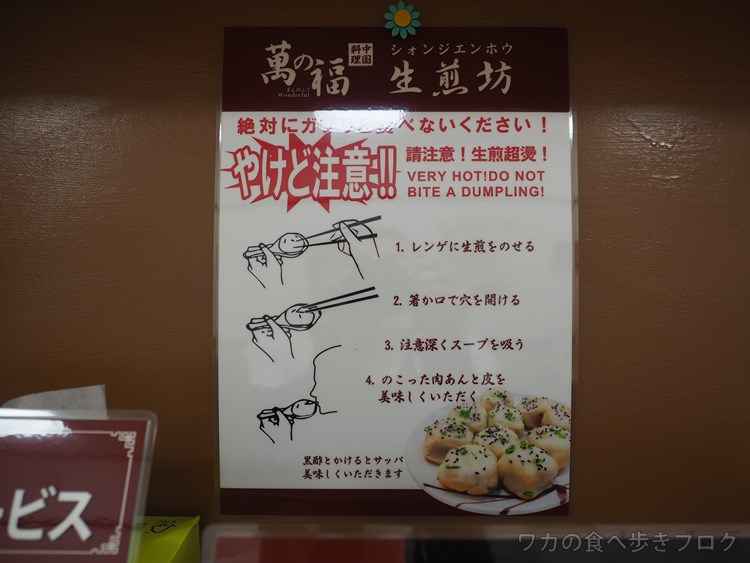 萬の福
まんのふく
Wonderful
中国料理
シォンジエンホウ
生煎坊
絶対にガ
べないください！
やけど注意!!
請注意！生煎超燙！
VERY HOT!DO NOT
BITE A DUMPLING!
1. レンゲに生煎をのせる
2. 箸か口で穴を開ける
3. 注意深くスープを吸う
4. のこった肉あんと皮を
美味しくいただく
黒酢とかけるとサッパ
美味しくいただきます
ービス
ワカの食べ歩きブログ